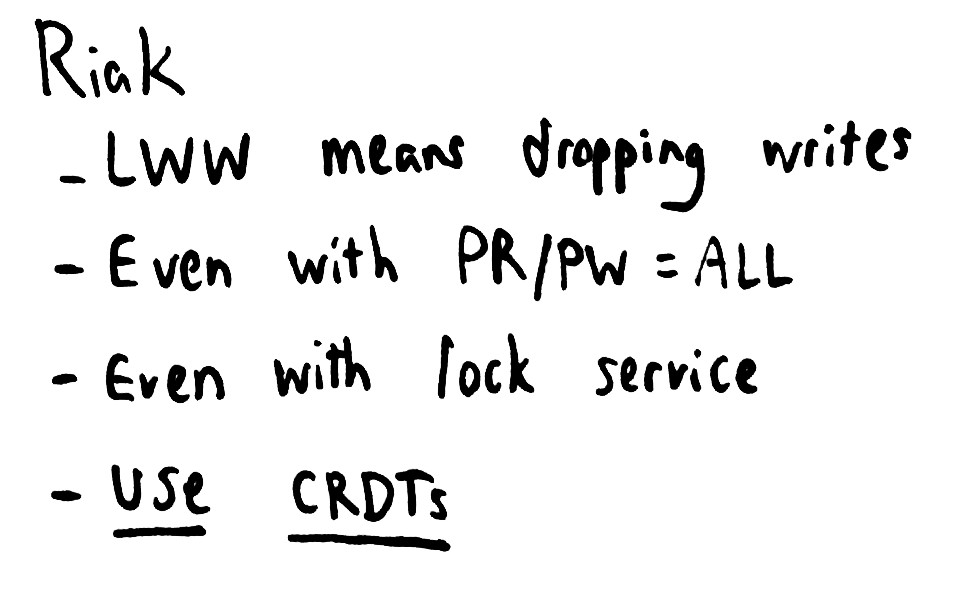 Riak
- LWW means dropping writes
- Even with PR/PW = ALL
- Even with lock service
- Use CRDTs